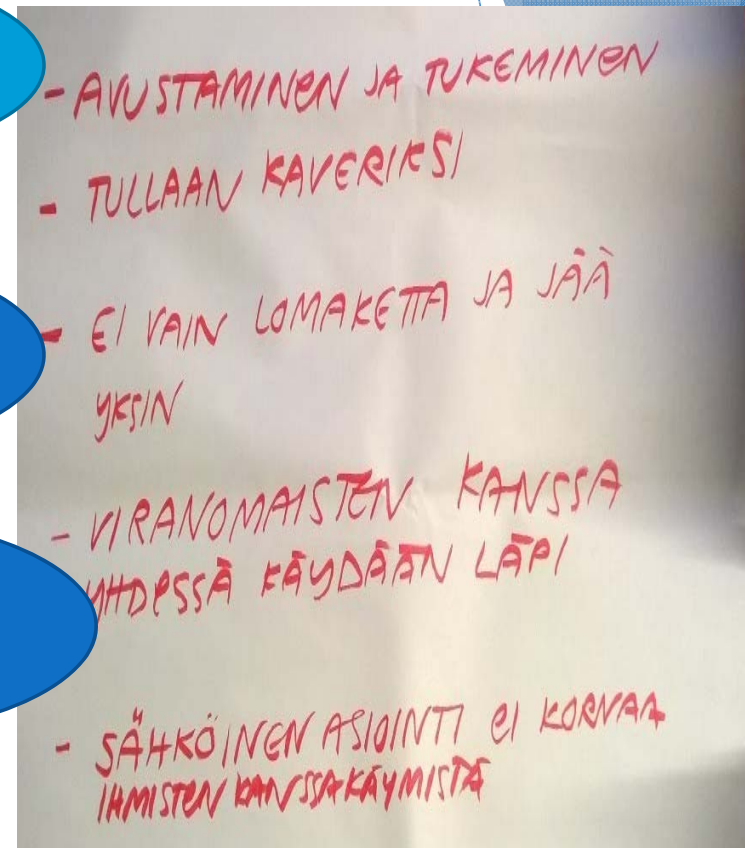 - AVUSTAMINEN JA TUKEMINEN
- TULLAAN KAVERIKSI
- EI VAIN LOMAKETTA JA JÄÄ
YKSIN
- VIRANOMAISTEN KANSSA
YHDESSÄ KÄYDÄÄN LÄPI
- SÄHKÖINEN ASIOINTI EI KORVAA
IHMISTEN KANSSAKÄYMISTÄ